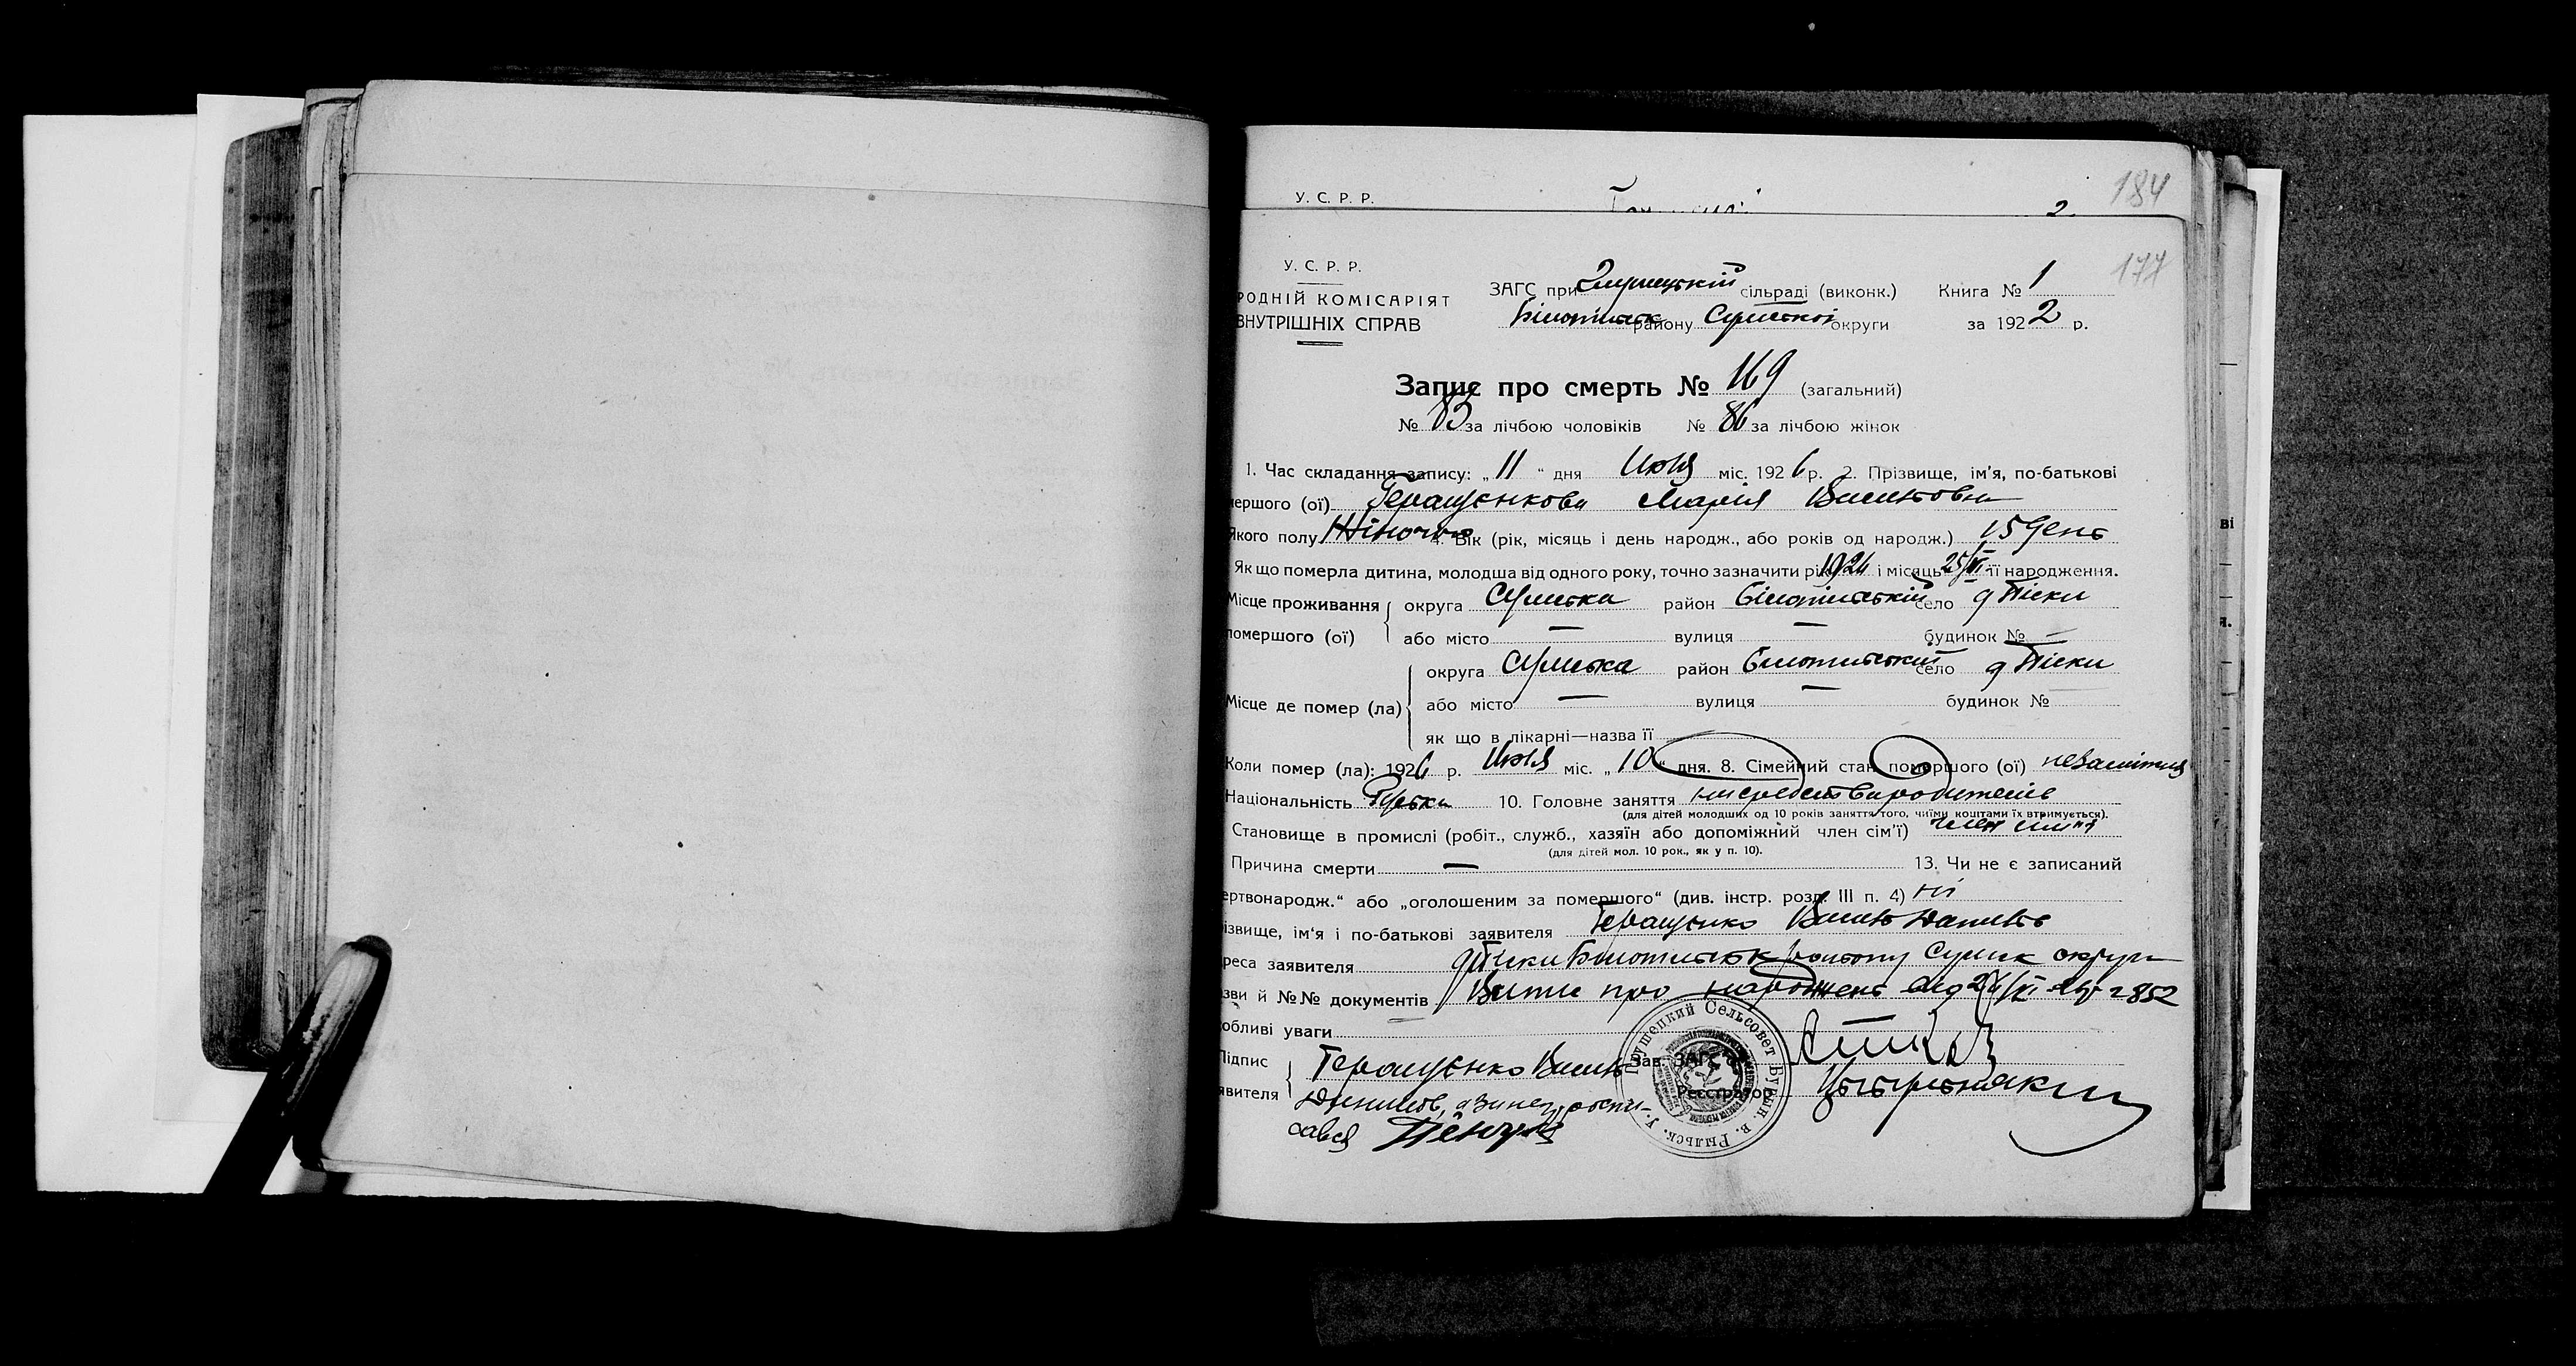 У. С. Р. Р.
184
У. С. Р. Р.
177
РОДНІЙ КОМІСАРІЯТ
ВНУТРІШНІХ СПРАВ
ЗАГС при сільраді (виконк.) Книга № 1
району Сумської округи за 1922 р.
Запис про смерть № 169 (загальний)
№ 83 за лічбою чоловіків № 86 за лічбою жінок
1. Час складання запису: „ 11 “ дня Июля міс. 1926 р. 2. Прізвище, ім'я, по-батькові
мершого (ої) Геращенкова Марія Васильовна
Якого полу Жіночого 4. Вік (рік, місяць і день народж., або років од народж.) 15 день
Як що померла дитина, молодша від одного року, точно зазначити рік 1926 і місяць 25/VI її народження.
Місце проживання округа Сумська район Білопільській село д Піски
помершого (ої) або місто — вулиця — будинок № —
округа Сумська район Білопільський село д Піски
Місце де помер (ла) або місто — вулиця — будинок №
як що в лікарні—назва її
Коли помер (ла): 1926 р. Июля міс. „ 10 “ дня. 8. Сімейний стан помершого (ої)
Національність Руська 10. Головне заняття
(для дітей молодших од 10 років заняття того, чиїми коштами їх втримується).
Становище в промислі (робіт., служб., хазяїн або допоміжний член сім'ї) член сим'ї
(для дітей мол. 10 рок., як у п. 10).
Причина смерти — 13. Чи не є записаний
ертвонародж.“ або „оголошеним за помершого“ (див. інстр. розд. III п. 4) ні
ізвище, ім'я і по-батькові заявителя Геращенко Василь Данильов
реса заявителя д Піски району Сумск округи
зви й №№ документів Витяг про народжень від 852
обливі уваги
Підпис Геращенко Василь Зав. ЗАГС'ом
явителя Данилов, а за нег роспи- Реєстратор
сався
Грушецкий Сельсовет Бурын. в. Рыльск. у.